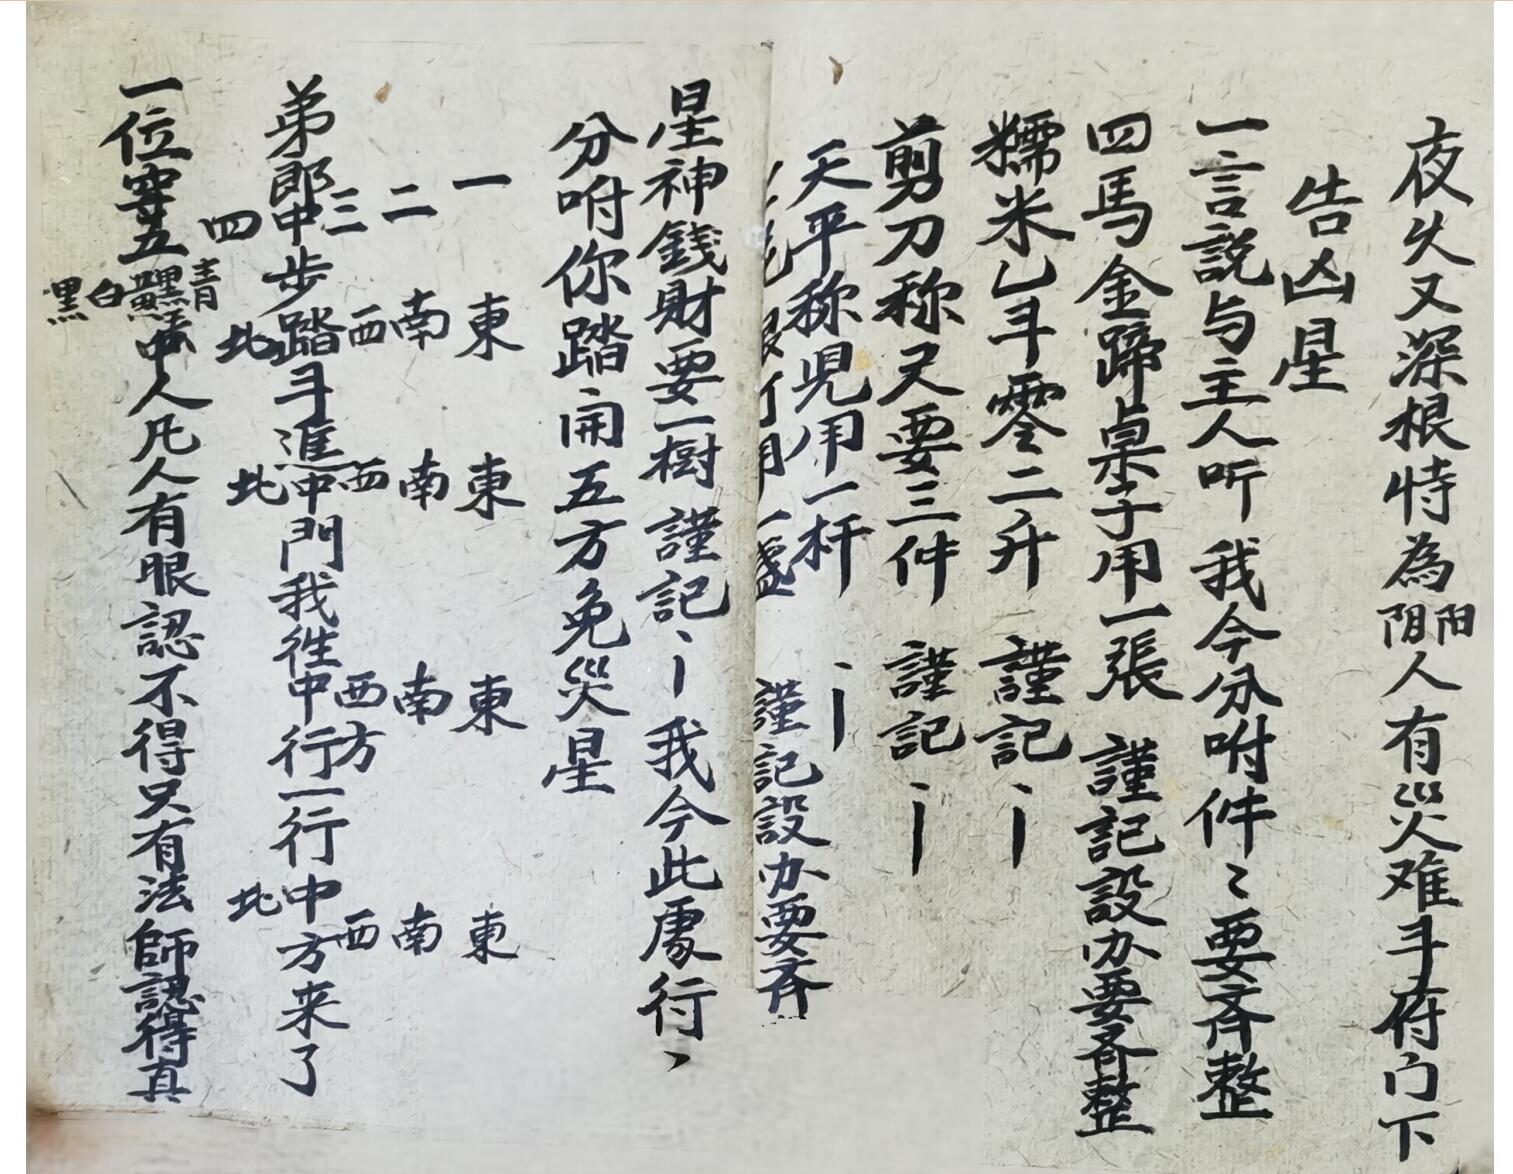 夜久又深根恃為阴阳人有災难斗府门下
告凶星
一言説与主人听 我今分咐件〻要齐整
四馬金蹄桌子用一張 謹記設办要齐整
糯米乚斗零二升 謹記丶丨
剪刀称尺要三件 謹記丶丨
天平称児用一杆 丶丨
用一盞 謹記設办要齐
星神錢財要一樹 謹記丶丨我今此處行丶
分咐你踏開五方免災星
一東 東 東 東
二南 南 南 南
三西 西 西方 西
弟郎中步踏斗進中門我徃中行一行中方来了
四北 北 北
一位穿五青黑白黑中人凡人有眼認不得只有法師認得真